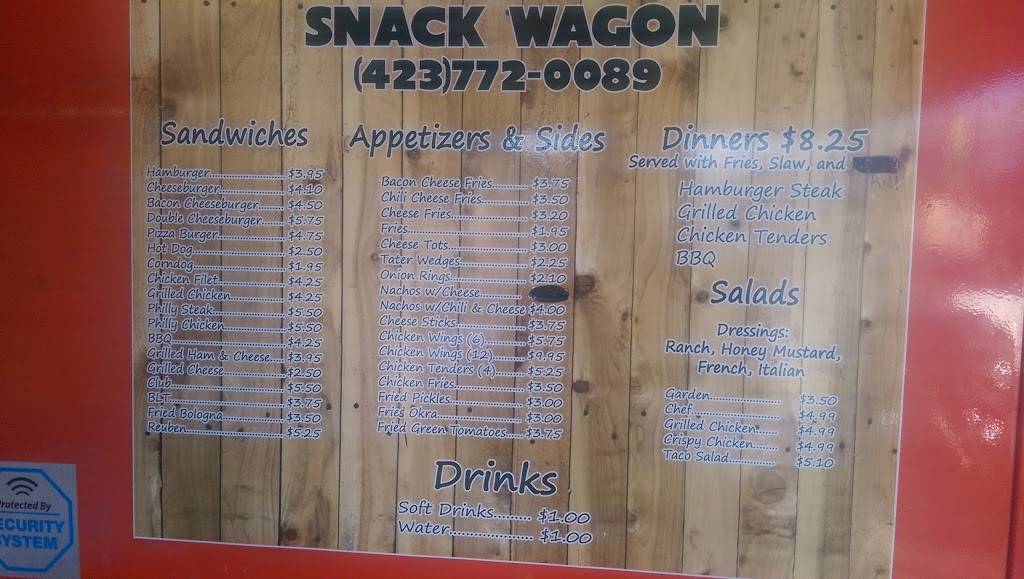 SNACK WAGON
(423)772-0089
Sandwiches
Hamburger $3.95
Cheeseburger $4.10
Bacon Cheeseburger $4.50
Double Cheeseburger $5.75
Pizza Burger $4.75
Hot Dog $2.50
Corndog $1.95
Chicken Filet $4.25
Grilled Chicken $4.25
Philly Steak $5.50
Philly Chicken $5.50
BBQ $4.25
Grilled Ham & Cheese $3.95
Grilled Cheese $2.50
Club $5.50
BLT $3.75
Fried Bologna $3.50
Reuben $5.25
Appetizers & Sides
Bacon Cheese Fries $3.75
Chili Cheese Fries $3.50
Cheese Fries $3.20
Fries $1.95
Cheese Tots $3.00
Tater Wedges $2.25
Onion Rings $2.10
Nachos w/Cheese
Nachos w/Chili & Cheese $4.00
Cheese Sticks $3.75
Chicken Wings (6) $5.75
Chicken Wings (12) $9.95
Chicken Tenders (4) $5.25
Chicken Fries $3.50
Fried Pickles $3.00
Fries Okra $3.00
Fried Green Tomatoes $3.75
Drinks
Soft Drinks $1.00
Water $1.00
Dinners $8.25
Served with Fries, Slaw, and
Hamburger Steak
Grilled Chicken
Chicken Tenders
BBQ
Salads
Dressings:
Ranch, Honey Mustard,
French, Italian
Garden $3.50
Chef $4.99
Grilled Chicken $4.99
Crispy Chicken $4.99
Taco Salad $5.10
Protected By
SECURITY
SYSTEM